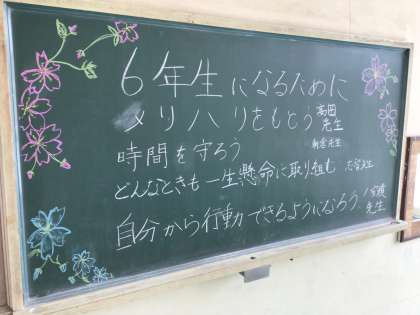 6年生になるために
メリハリをもとう 高田先生
時間を守ろう
どんなときも一生懸命に取り組む
自分から行動できるようになろう 先生